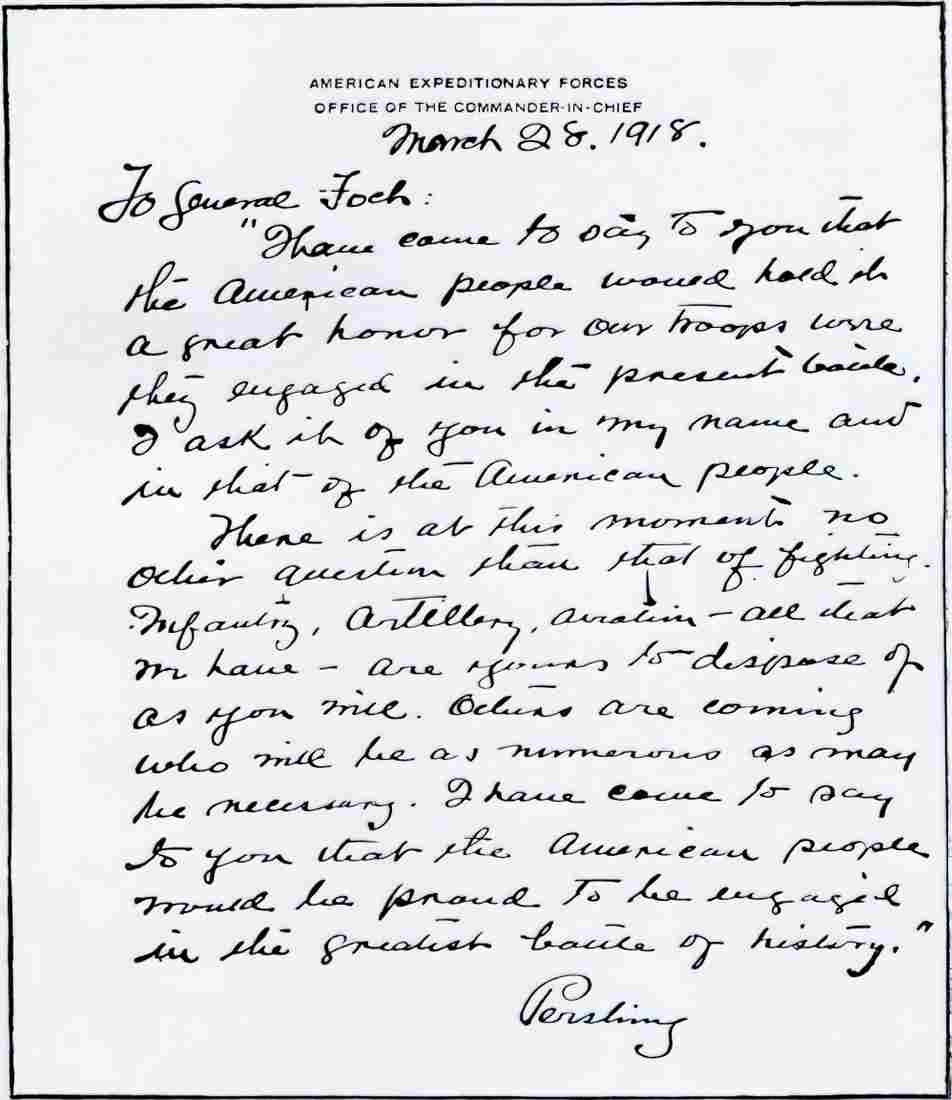 AMERICAN EXPEDITIONARY FORCES
OFFICE OF THE COMMANDER-IN-CHIEF
March 28. 1918.
To General Foch:
"I have come to say to you that
the American people would hold it
a great honor for our troops were
they engaged in the present battle.
I ask it of you in my name and
in that of the American people.
There is at this moment no
other question than that of fighting.
Infantry, Artillery, aviation – all that
we have – are yours to dispose of
as you will. Others are coming
who will be as numerous as may
be necessary. I have come to say
to you that the American people
would be proud to be engaged
in the greatest battle of history."
Pershing